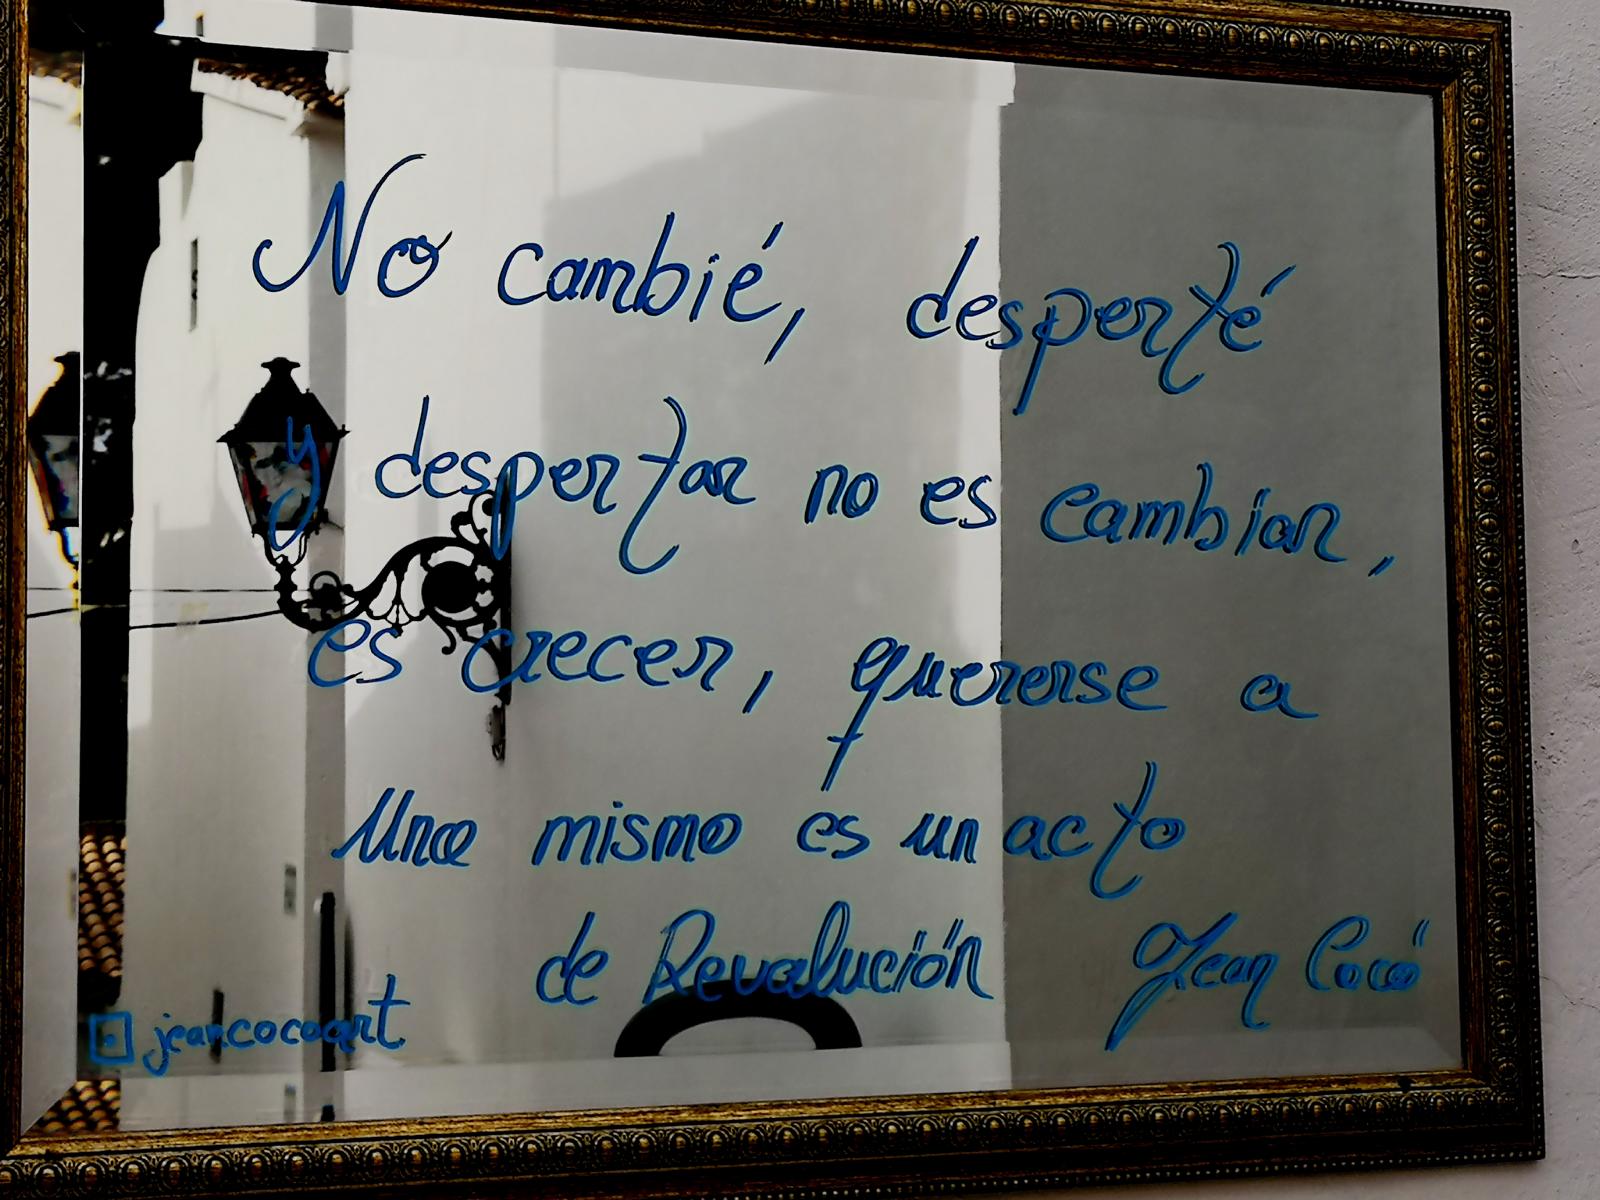 No cambié, desperté
y despertar no es cambiar,
es crecer, quererse a
Uno mismo es un acto
de Revalución Jean Cocó
jeancocoart